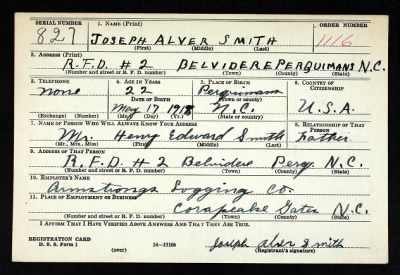 SERIAL NUMBER 1. NAME (Print) ORDER NUMBER
827 JOSEPH ALVER SMITH 1116
(First) (Middle) (Last)
2. ADDRESS (Print)
R.F.D. #2 BELVIDERE PERQUIMANS N.C.
(Number and street or R. F. D. number) (Town) (County) (State)
3. TELEPHONE 4. AGE IN YEARS 5. PLACE OF BIRTH 6. COUNTRY OF CITIZENSHIP
none 22 Perquimans
DATE OF BIRTH (Town or county)
May 17 1918 N.C. U.S.A.
(Exchange) (Number) (Mo.) (Day) (Yr.) (State or country)
7. NAME OF PERSON WHO WILL ALWAYS KNOW YOUR ADDRESS 8. RELATIONSHIP OF THAT PERSON
Mr. Henry Edward Smith Father
(Mr., Mrs., Miss) (First) (Middle) (Last)
9. ADDRESS OF THAT PERSON
R.F.D. #2 Belvidere Perq. N.C.
(Number and street or R. F. D. number) (Town) (County) (State)
10. EMPLOYER'S NAME
Armstrongs Logging Co.
11. PLACE OF EMPLOYMENT OR BUSINESS
Corapeake Gates N.C.
(Number and street or R. F. D. number) (Town) (County) (State)
I AFFIRM THAT I HAVE VERIFIED ABOVE ANSWERS AND THAT THEY ARE TRUE.
REGISTRATION CARD
D. S. S. Form 1 (over) 16-17105 Joseph Alver Smith
(Registrant's signature)